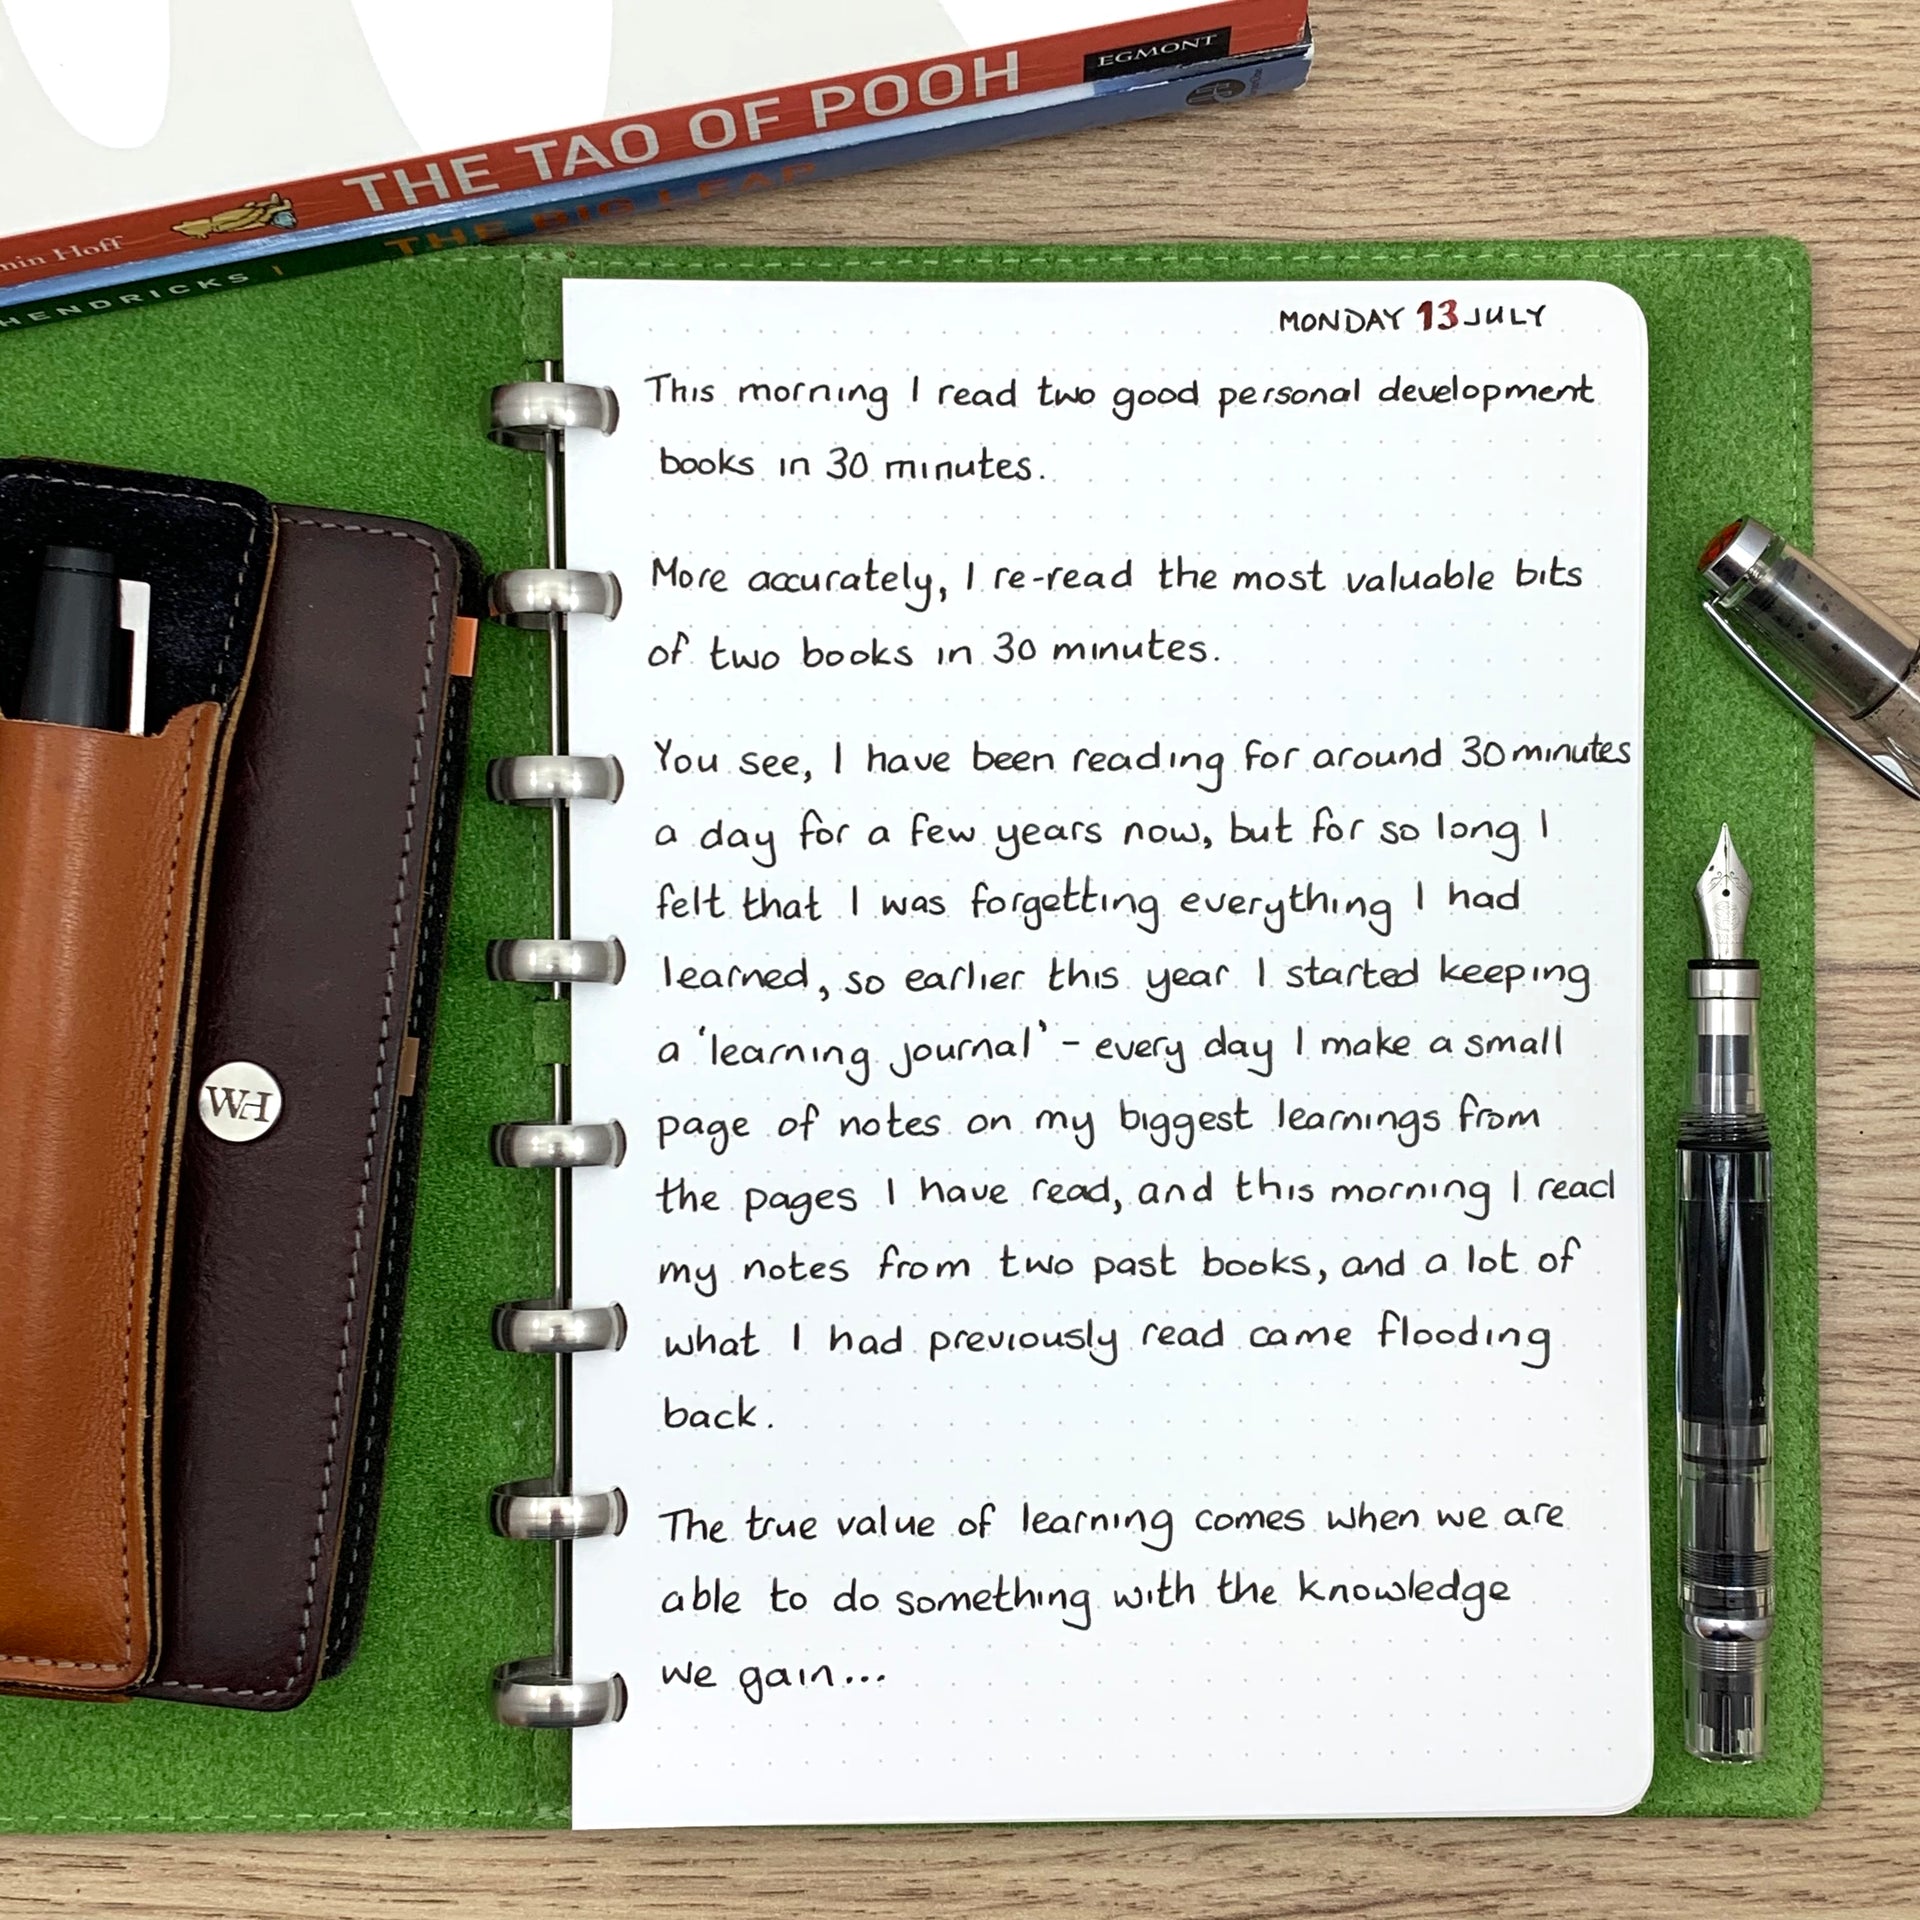 THE TAO OF POOH
EGMONT
min Hoff
THE BIG LEAP
HENDRICKS
MONDAY 13 JULY
This morning I read two good personal development
books in 30 minutes.
More accurately, I re-read the most valuable bits
of two books in 30 minutes.
You see, I have been reading for around 30 minutes
a day for a few years now, but for so long I
felt that I was forgetting everything I had
learned, so earlier this year I started keeping
a 'learning journal' - every day I make a small
page of notes on my biggest learnings from
the pages I have read, and this morning I read
my notes from two past books, and a lot of
what I had previously read came flooding
back.
The true value of learning comes when we are
able to do something with the knowledge
we gain...
WH